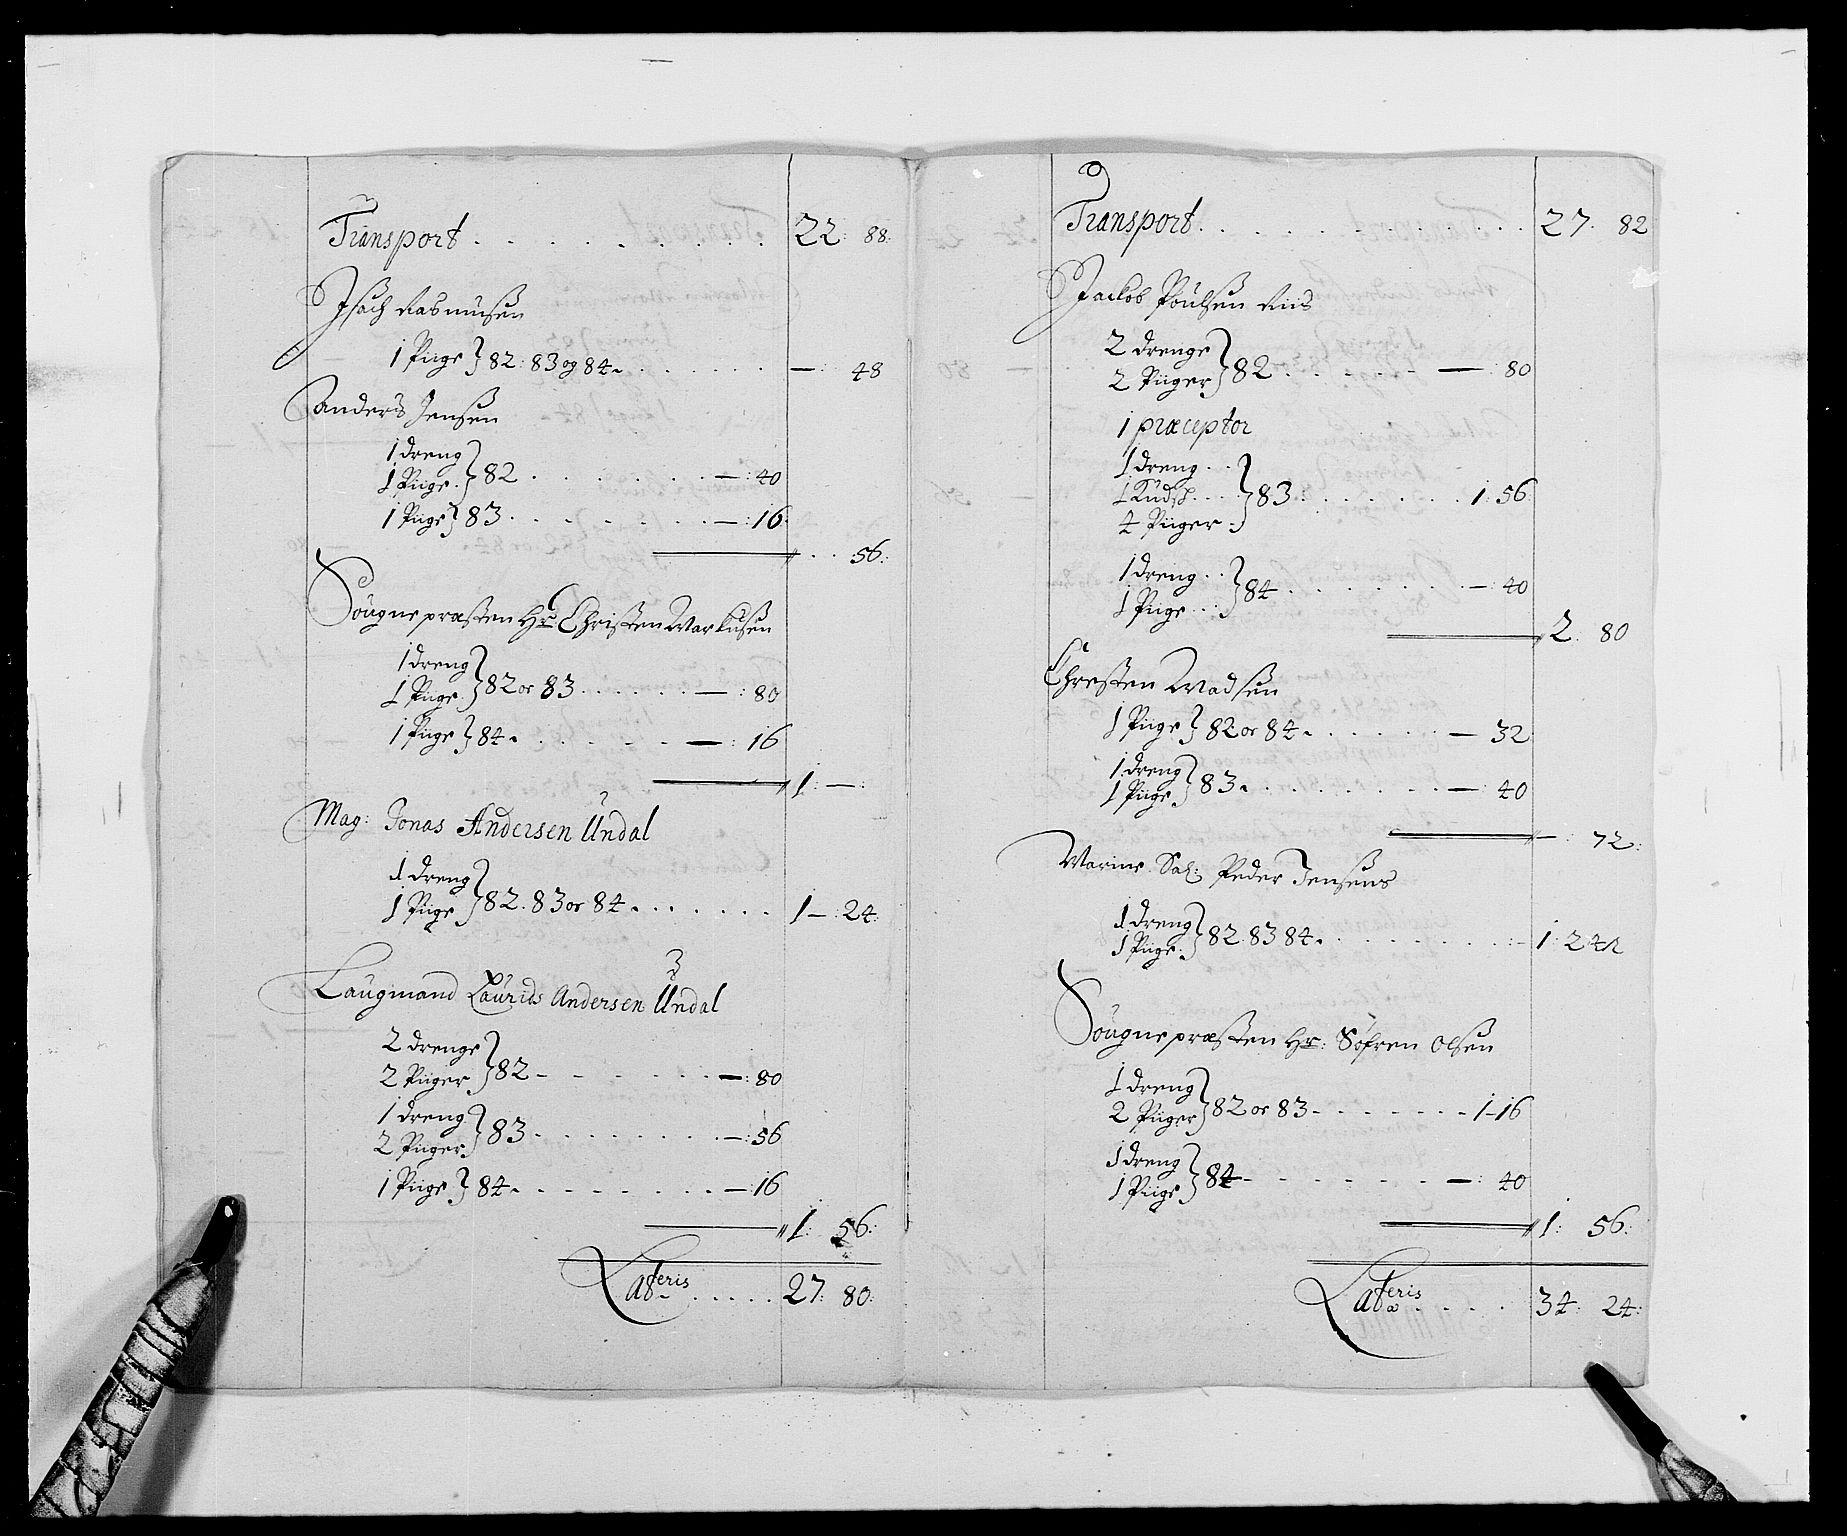 Transport . . . . . . . . . 22: 88:
Isach Rasmusen
1 Piige } 82: 83 og 84 . . . . . . . — : 48
Anders Jensen
1 dreng
1 Piige } 82 . . . . . . . — : 40
1 Piige } 83 . . . . . . . — : 16
. . 56:
Sougnepræsten Hr Christen Markusen
1 dreng
1 Piige } 82 or 83 . . . . . . — : 80
1 Piige } 84 . . . . . . . — : 16
1: — :
Mag: Jonas Andersen Undal
1 dreng
1 Piige } 82. 83 or 84 . . . . . . . 1 — : 24:
Laugmand Laurids Andersen Undal
2 drenge
2 Piiger } 82 - . . . . . . — : 80
1 dreng
2 Piiger } 83 . . . . . . . . — : 56
1 Piige } 84 . . . . . . . . . — 16
1: 56:
Lateris . . . . . 27: 80:
Transport . . . . . . . . . . . . 27. 82
Jackob Poulsen Riis
2 drenge
2 Piiger } 82 . . . . . . — : 80
1 præceptor
1 dreng . .
1 Kudsk . . .
4 Piiger . } 83 . . . . . . . 1: 56:
1 dreng . .
1 Piige . . . } 84 . . . . . . . . — : 40
2. 80
Chresten Madsen
1 Piige } 82 or 84 . . . . . . — 32
1 dreng
1 Piige } 83 . . . . . . . . — : 40
— : 72:
Marine Sal: Peder Jensens
1 dreng
1 Piige . } 82. 83 84 . . . . . . . . . 1: 24
Sougnepræsten Hr: Søfren Olsen
1 dreng
2 Piiger } 82 or 83 - . . . . . . 1 - 16
1 dreng
1 Piige } 84 - . . . . . . . — : 40
1: 56:
Lateris . . . . . 34: 24: